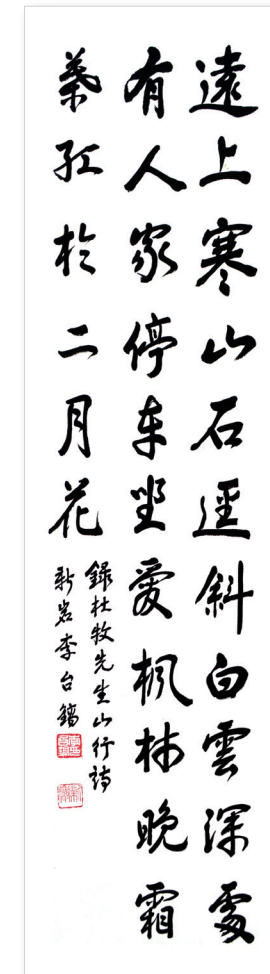 遠上寒山石逕斜白雲深處
有人家停車坐愛楓林晚霜
葉紅於二月花
錄杜牧先生山行詩
新岩李台鎛